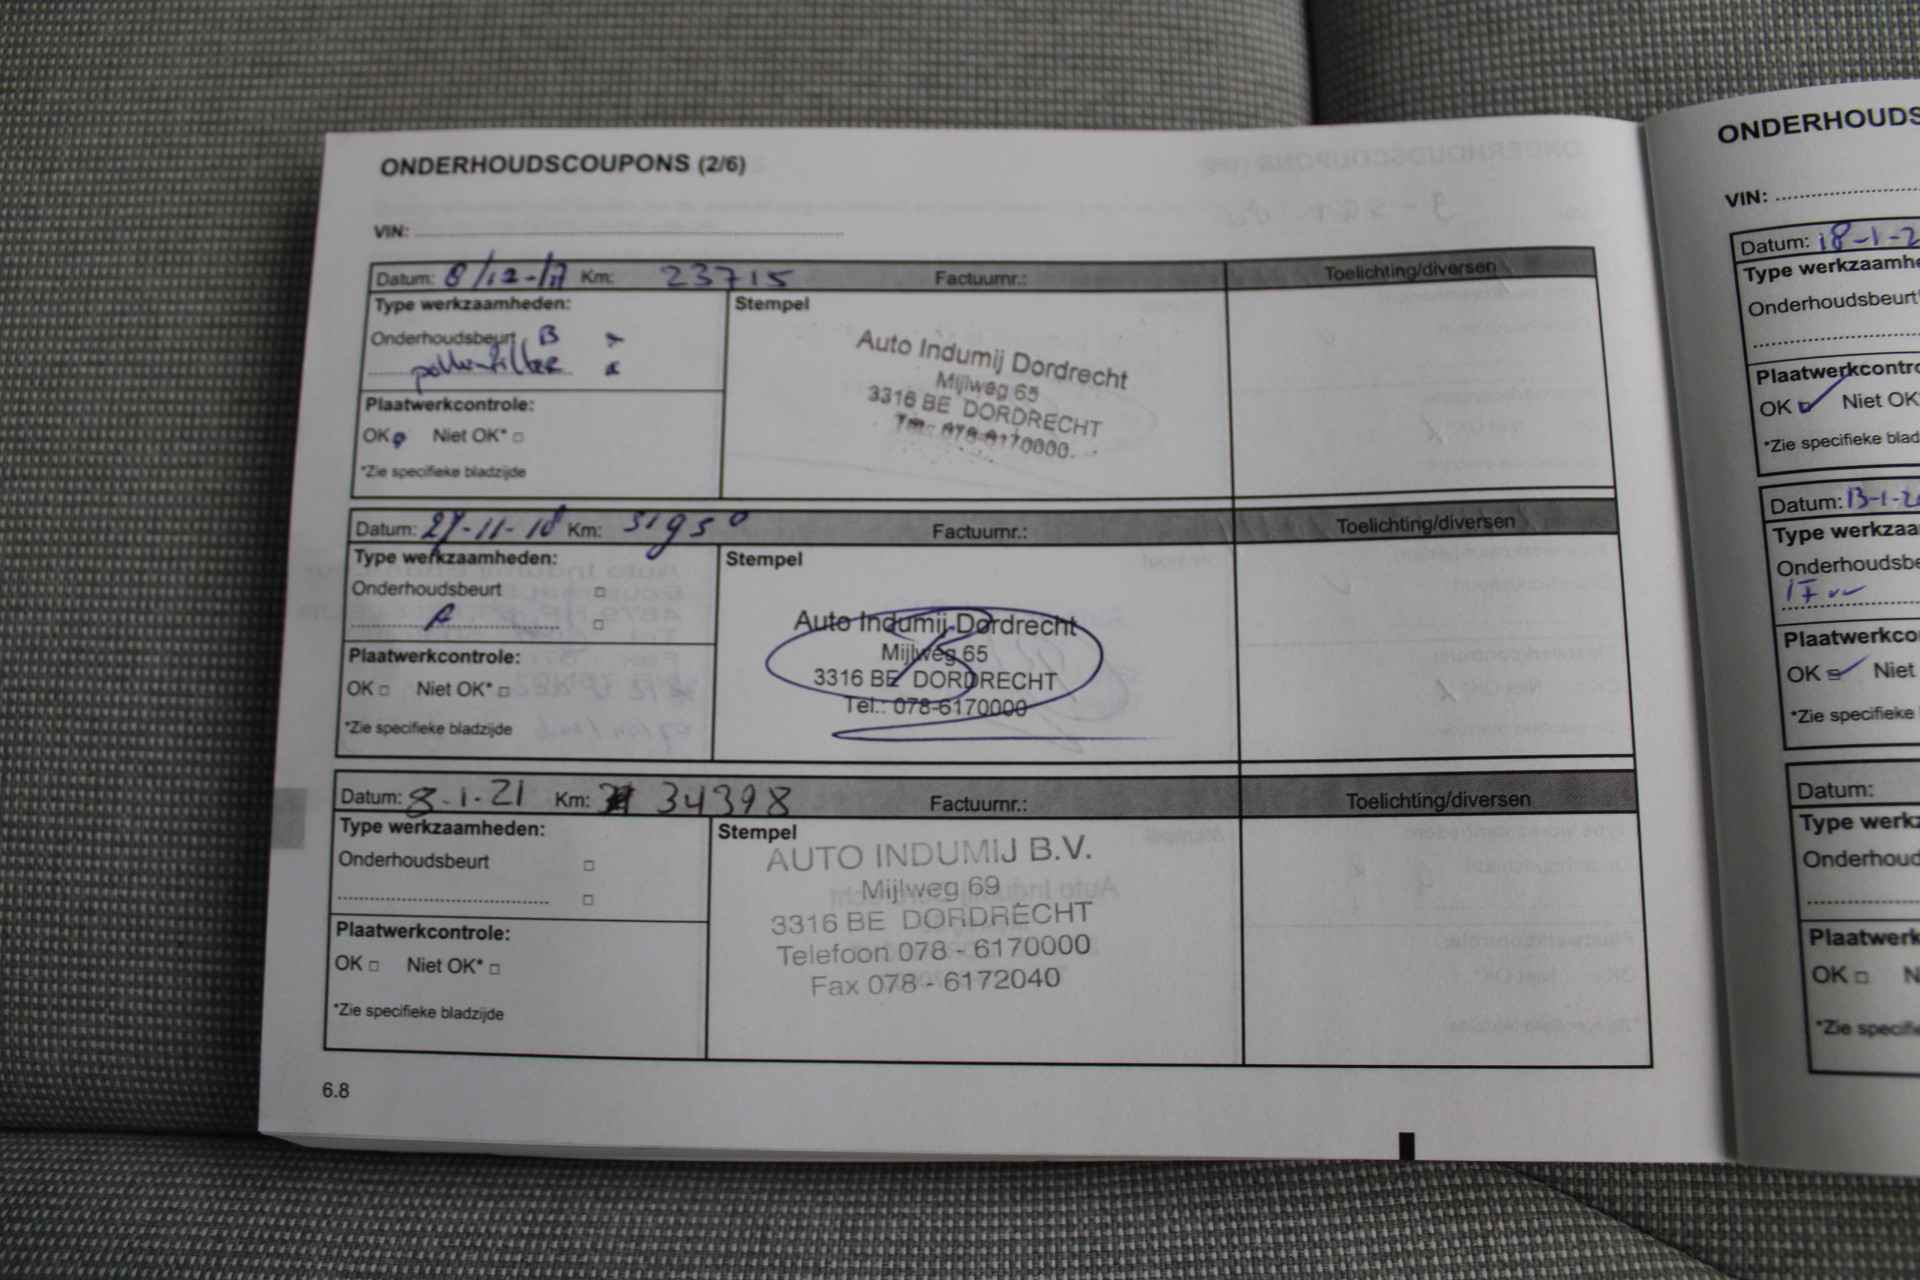 ONDERHOUDSCOUPONS (2/6)
VIN:
Datum: 8/12-17 Km: 23715 Factuurnr.: Toelichting/diversen
Type werkzaamheden:
Stempel
Onderhoudsbeurt B
pollenfilter
Plaatwerkcontrole:
OK Niet OK*
*Zie specifieke bladzijde
Auto Indumij Dordrecht
Mijlweg 65
3316 BE DORDRECHT
Tel.: 078-6170000
Datum: 27-11-18 Km: 31950 Factuurnr.: Toelichting/diversen
Type werkzaamheden:
Stempel
Onderhoudsbeurt
A
Plaatwerkcontrole:
OK Niet OK*
*Zie specifieke bladzijde
Auto Indumij Dordrecht
Mijlweg 65
3316 BE DORDRECHT
Tel.: 078-6170000
Datum: 8-1-21 Km: 34398 Factuurnr.: Toelichting/diversen
Type werkzaamheden:
Stempel
Onderhoudsbeurt
Plaatwerkcontrole:
OK Niet OK*
*Zie specifieke bladzijde
AUTO INDUMIJ B.V.
Mijlweg 69
3316 BE DORDRECHT
Telefoon 078 - 6170000
Fax 078 - 6172040
6.8
ONDERHOUDS
VIN:
Datum: 18-1-2
Type werkzaamhe
Onderhoudsbeurt
Plaatwerkcontro
OK Niet OK*
*Zie specifieke blad
Datum: 13-1-2
Type werkzaa
Onderhoudsbe
Plaatwerkco
OK Niet
*Zie specifieke
Datum:
Type werkz
Onderhoud
Plaatwerk
OK N
*Zie specifi